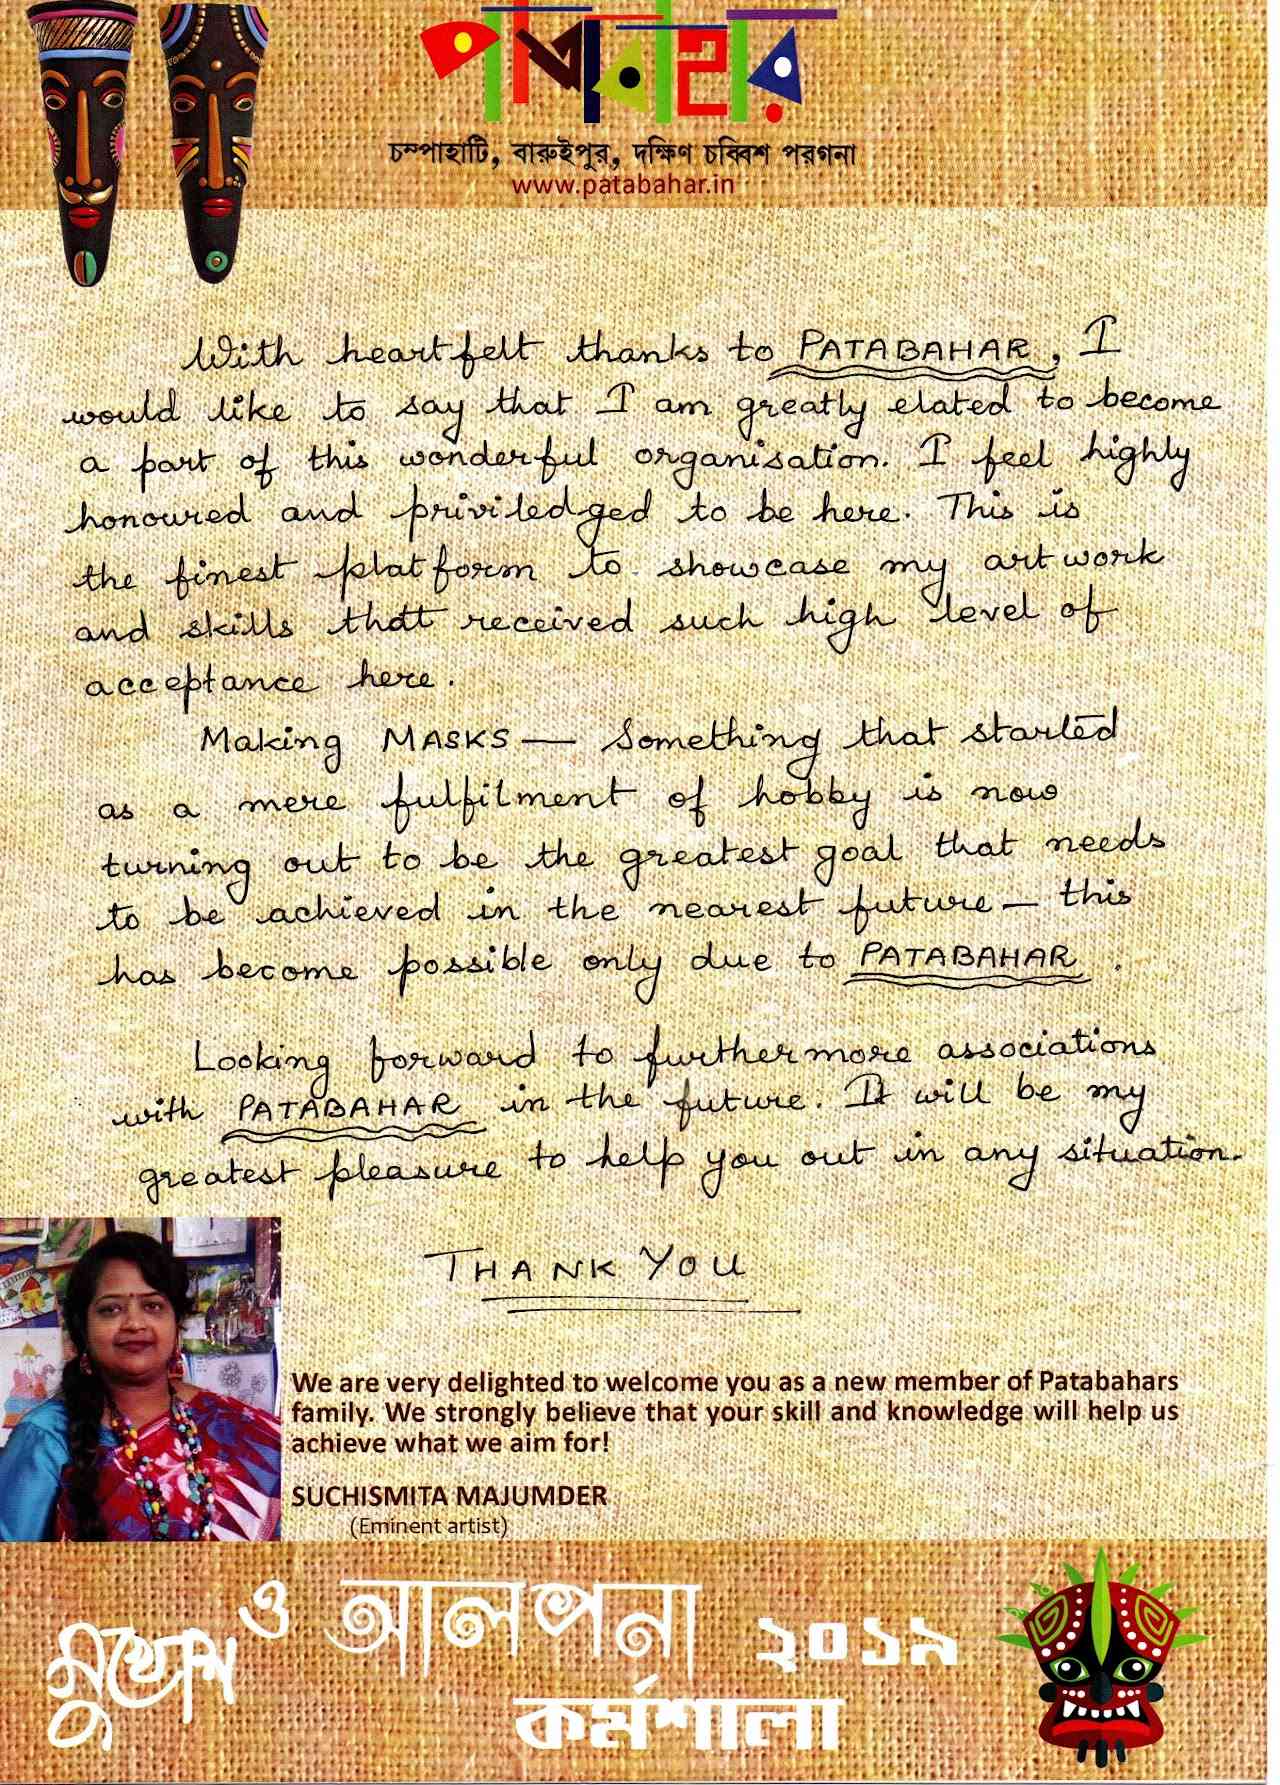 পাতাবাহার
চম্পাহাটি, বারুইপুর, দক্ষিণ চব্বিশ পরগনা
www.patabahar.in
With heartfelt thanks to PATABAHAR, I
would like to say that I am greatly elated to become
a part of this wonderful organisation. I feel highly
honoured and priviledged to be here. This is
the finest platform to showcase my artwork
and skills thatt received such high level of
acceptance here.
Making MASKS — Something that started
as a mere fulfilment of hobby is now
turning out to be the greatest goal that needs
to be achieved in the nearest future — this
has become possible only due to PATABAHAR.
Looking forward to furthermore associations
with PATABAHAR in the future. It will be my
greatest pleasure to help you out in any situation.
THANK YOU
We are very delighted to welcome you as a new member of Patabahars
family. We strongly believe that your skill and knowledge will help us
achieve what we aim for!
SUCHISMITA MAJUMDER
(Eminent artist)
মুখোশ ও আলপনা ২০১৯
কর্মশালা